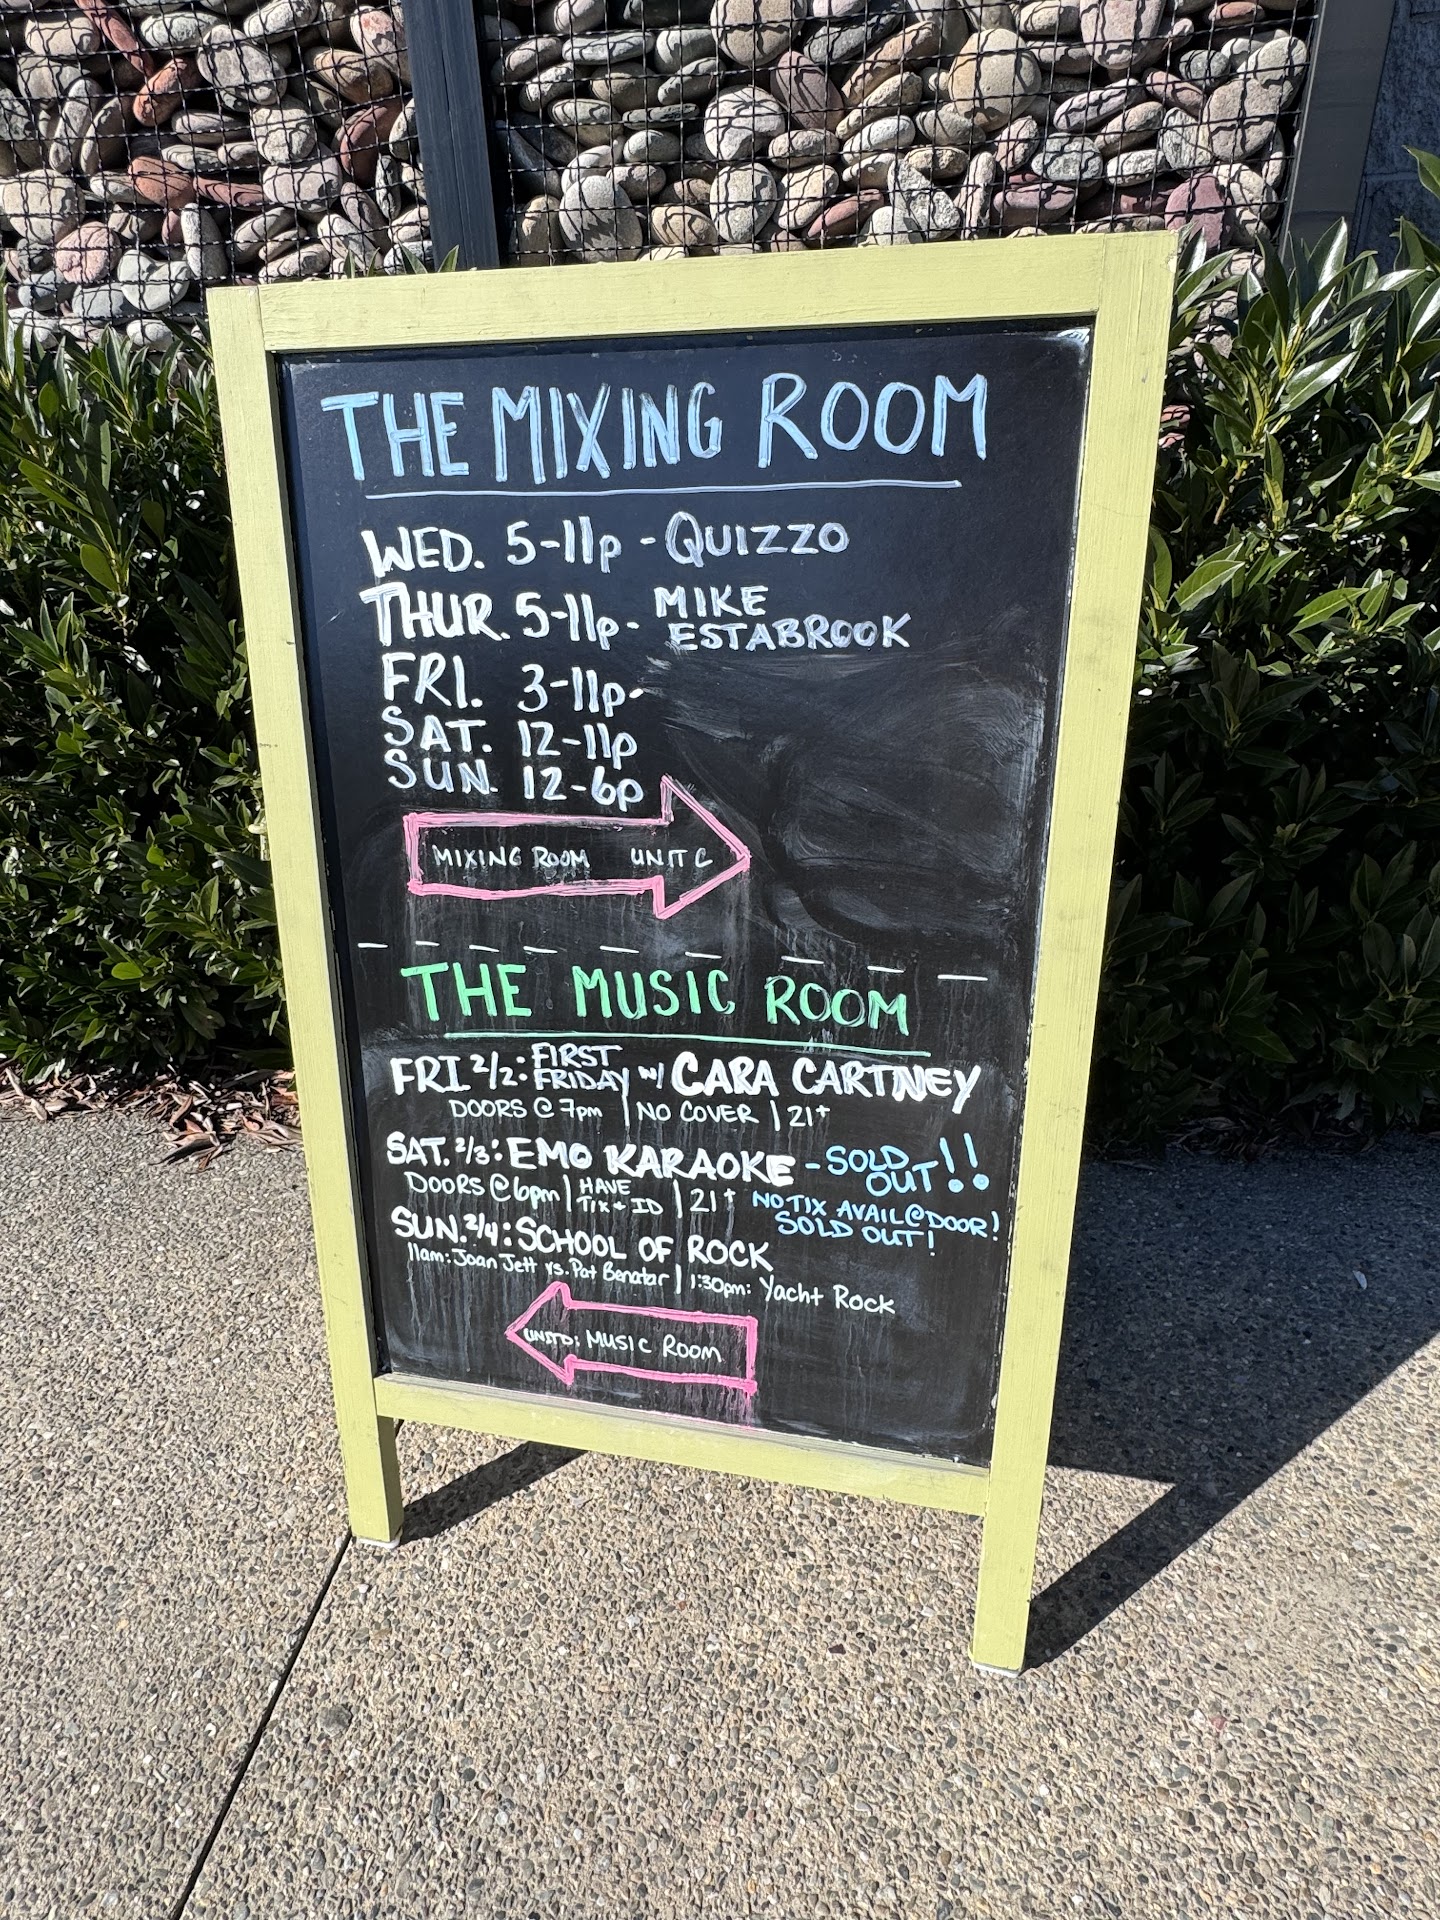 THE MIXING ROOM
WED. 5-11p - QUIZZO
THUR. 5-11p - MIKE
ESTABROOK
FRI. 3-11p-
SAT. 12-11p
SUN. 12-6p
MIXING ROOM UNIT C
THE MUSIC ROOM
FRI 2/2: FIRST FRIDAY w/ CARA CARTNEY
DOORS @ 7pm | NO COVER | 21+
SAT. 2/3: EMO KARAOKE - SOLD OUT!!
DOORS @ 6pm | HAVE TIX + ID | 21+ NO TIX AVAIL @ DOOR!
SOLD OUT!
SUN. 2/4: SCHOOL OF ROCK
11am: Joan Jett vs. Pat Benatar | 1:30pm: Yacht Rock
UNIT D: MUSIC ROOM